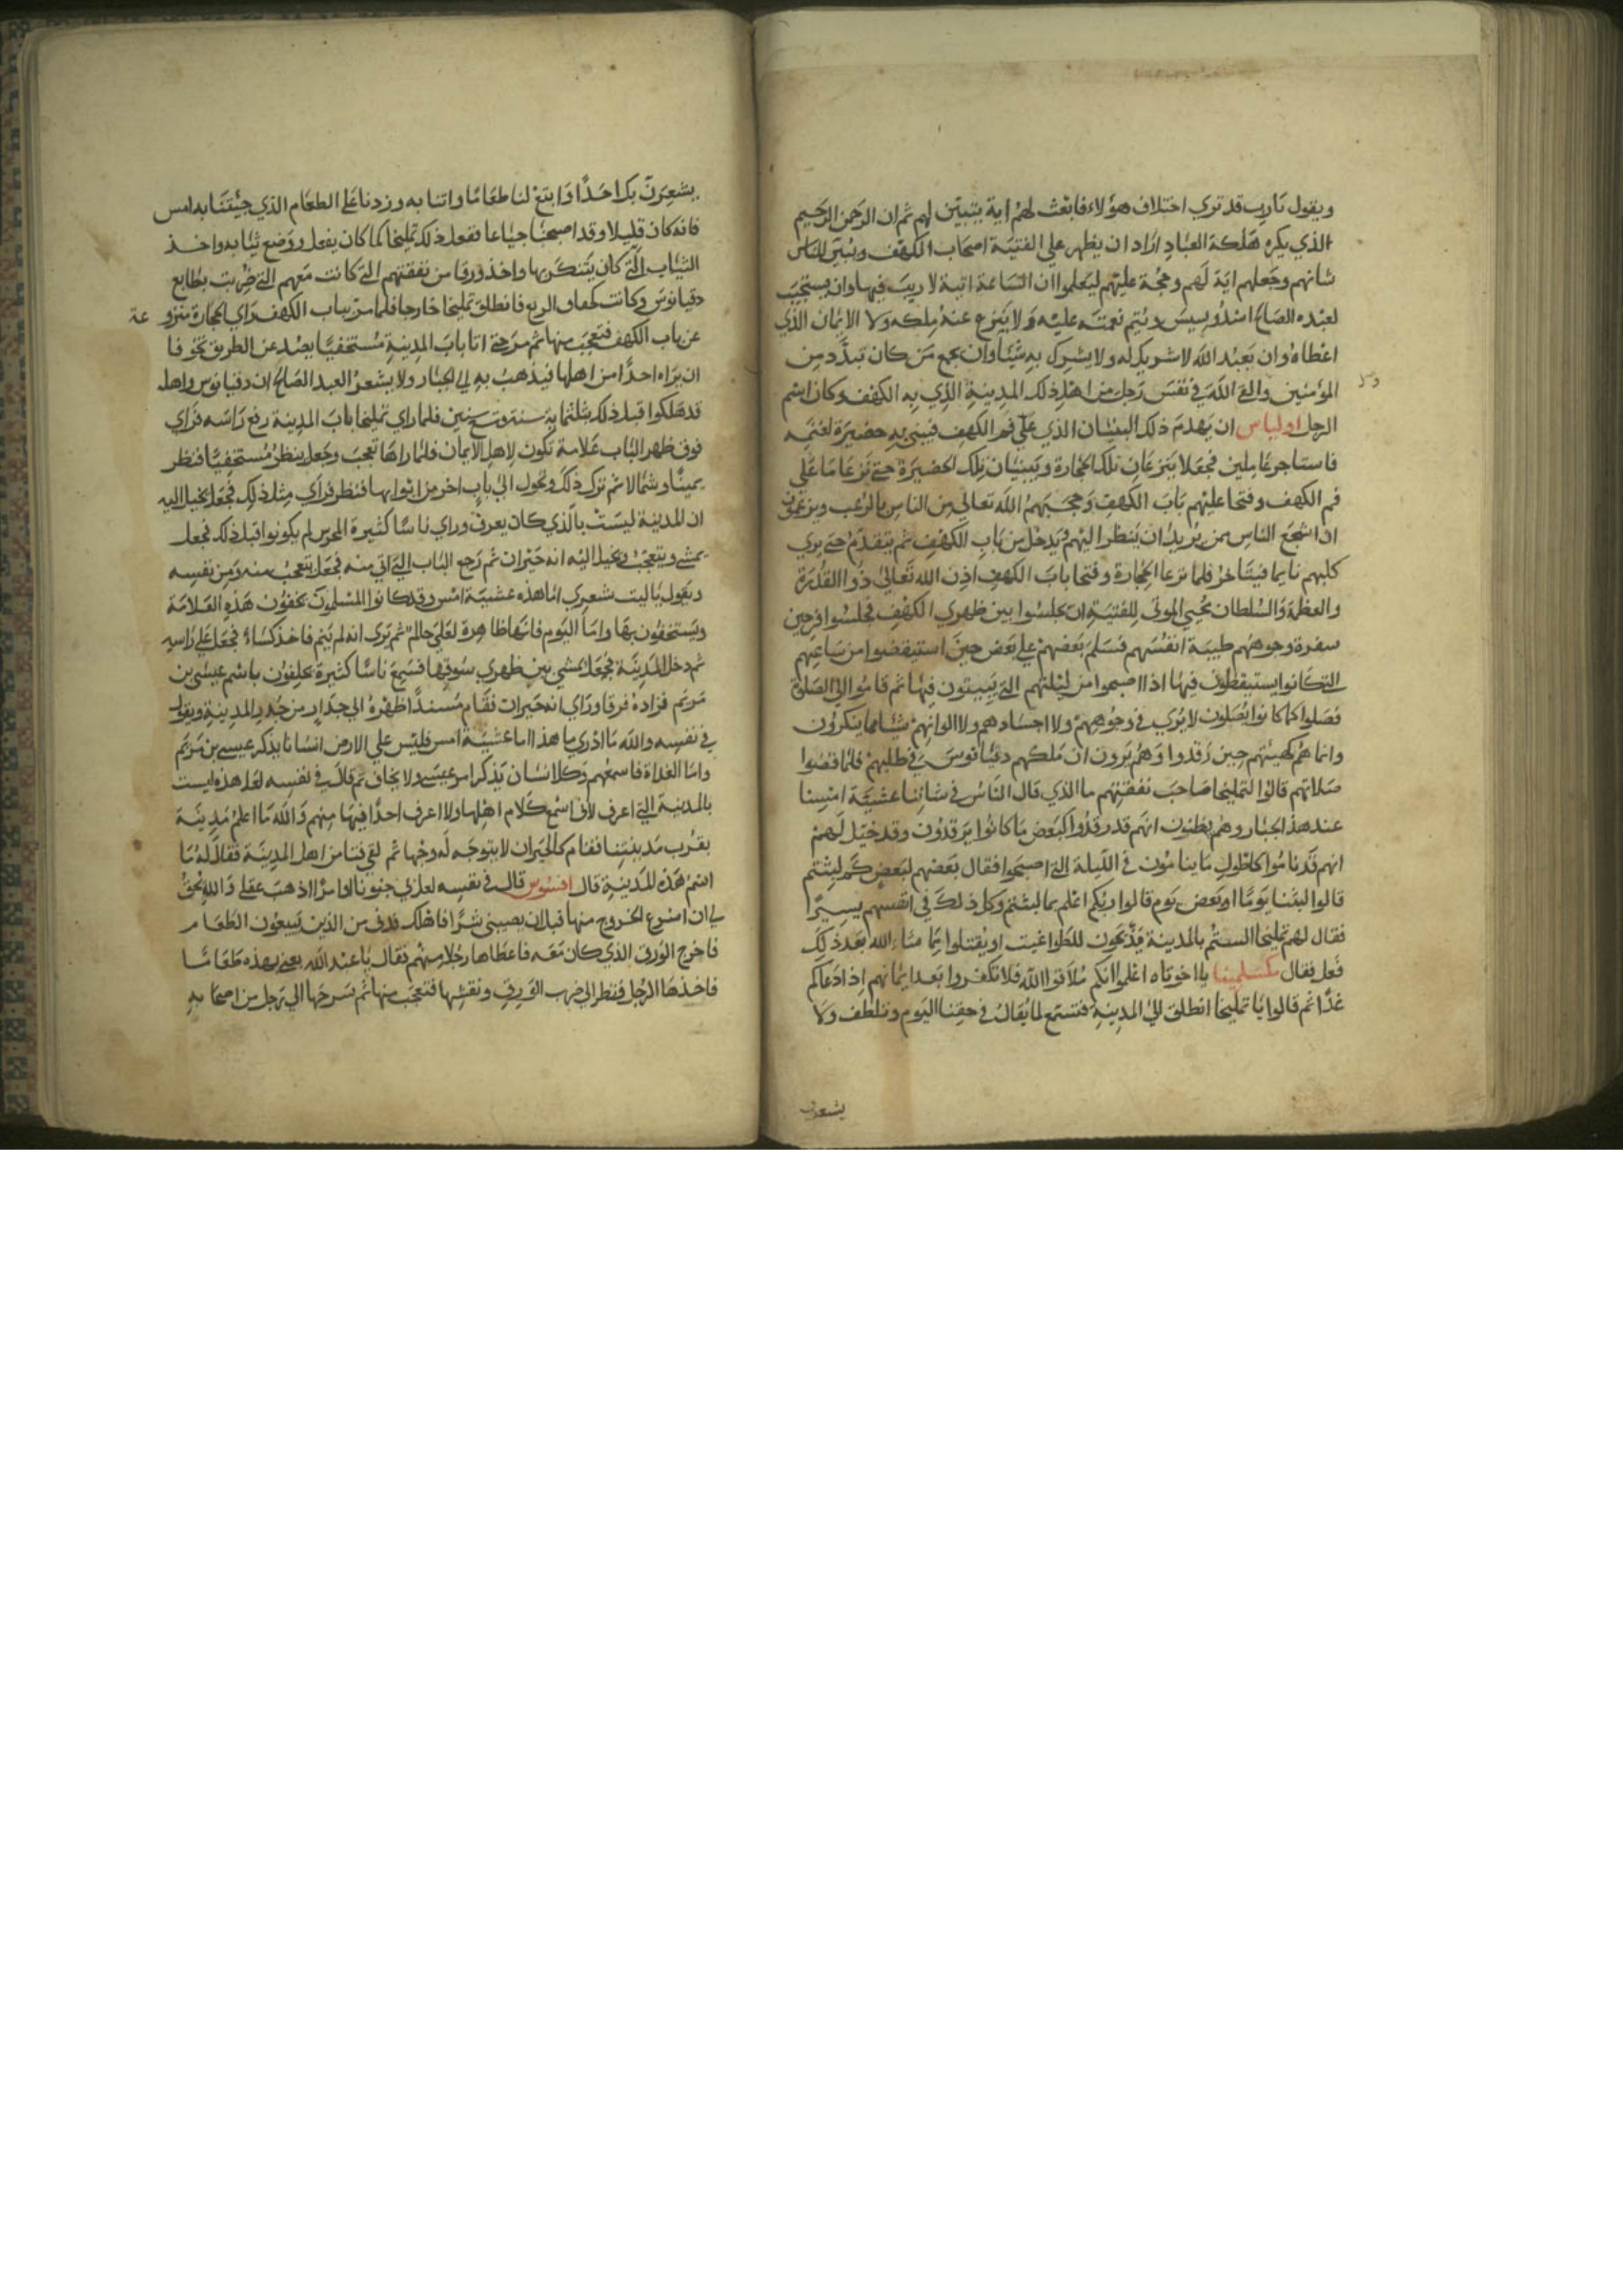 ويقول يارب قد تري اختلاف هؤلاء فابعث لهم اية يتبين لهم ثم ان الرحمن الرحيم
الذي يكره هلكة العباد اراد ان يظهر علي الفتية اصحاب الكهف ويبين للناس
شانهم وجعلهم اية لهم وحجة عليهم ليعلموا ان الساعة اتية لا ريب فيها وان يستجيب
لعبده الصالح اسدوسيس ويتم نعمته عليه ولا ينزع عنه ملكه ولا الايمان الذي
اعطاه وان يعبد الله لا شريك له ولا يشرك به شيئا وان يجمع من كان تبدد من
المؤمنين والقي الله في نفس رجل من اهل ذلك المدينة الذي به الكهف وكان اسم
الرجل اولياس ان يهدم ذلك البنيان الذي علي فم الكهف فيبني به حضيرة لغنمه
فاستاجر عاملين فجعلا ينزعان تلك الحجارة ويبنيان تلك الحضيرة حتي نزعا ما علي
فم الكهف وفتحا عليهم باب الكهف وحجبهم الله تعالي من الناس بالرعب ويزعمون
ان اشجع الناس من يريد ان ينظر اليهم يدخل من باب الكهف ثم يتقدم حتي يري
كلبهم نايما فيتاخر فلما نزعا الحجارة وفتحا باب الكهف اذن الله تعالي ذو القدرة
والعظمة والسلطان محيي الموتي للفتية ان يجلسوا بين ظهري الكهف فجلسوا فرحين
سفرة وجوههم طيبة انفسهم فسلم بعضهم علي بعض حين استيقضوا من ساعتهم
التي كانوا يستيقظون فيها اذا اصبحوا من ليلتهم التي يبيتون فيها ثم قاموا الي الصلوة
فصلوا كما كانوا يصلون لا يري في وجوههم ولا اجسادهم ولا الوانهم شيئا مما ينكرون
وانما هم كهيئتهم حين رقدوا وهم يرون ان ملكهم دقيانوس في طلبهم فلما قضوا
صلاتهم قالوا لتمليخا صاحب نفقتهم ما الذي قال الناس في شاننا عشية امسنا
عند هذ الجبار وهم يظنون انهم قد رقدوا كبعض ما كانوا يرقدون وقد خيل لهم
انهم قد ناموا كاطول ما يناموون في الليلة التي اصبحوا فقال بعضهم لبعض كم لبثتم
قالوا لبثنا يوما او بعض يوم قالوا ربكم اعلم بما لبثتم وكل ذلك في انفسهم يسيرا
فقال لهم تمليخا الستم بالمدينة يذبحون للطواغيت او يقتلوا بما شاء الله بعد ذلك
فعل فقال مكسلمينا يا اخوتاه اعلموا انكم ملاقوا الله فلا تكفروا بعد ايمانهم اذا دعاكم
غدا ثم قالوا يا تمليخا انطلق الي المدينة فتسمع لما يقال في حقنا اليوم وتتلطف ولا
يشعرن
يشعرن بك احدا وابتغ لنا طعاما واتنا به وزدنا علي الطعام الذي جيئتنا به امس
فانه كان قليلا وقد اصبحنا جياعا ففعل ذلك تمليخا كما كان يفعل ووضع ثيابه واخذ
الثياب التي كان يتنكر بها واخذ ورقا من نفقتهم التي كانت معهم التي ضربت بطابع
دقيانوس وكانت كخفاف الربع فانطلق تمليخا خارجا فلما مر بباب الكهف راي الحجارة منزو عة
عن باب الكهف فتعجب منها ثم مر حتي اتا باب المدينة مستخفيا يصد عن الطريق تخوفا
ان يراه احدا من اهلها فيذهب به الي الجبار ولا يشعر العبد الصالح ان دقيانوس واهله
قد هلكوا قبل ذلك بثلثماية سنة وتسع سنين فلما راي تمليخا باب المدينة رفع راسه فراي
فوق ظهر الباب علامة تكون لاهل الايمان فلما راها تعجب وجعل ينظر مستخفيا فنظر
يمينا وشمالا ثم ترك ذلك وتحول الي باب اخر من ابوابها فنظر فراي مثل ذلك فجعل يخيل اليه
ان المدينة ليست بالذي كان يعرف وراي ناسا كثيرة لم يكونوا قبل ذلك فجعل
يمشي ويتعجب ويخيل اليه انه حيران ثم رجع الباب التي اتي منه فجعل يتعجب منه ومن نفسه
ويقول يا ليت شعري اما هذه عشية امس وقد كانوا المسلمون يخفون هذه العلامة
ويستخفون بها واما اليوم فانها ظاهرة لعلي حالم ثم يري انه لم ينم فاخذ كساءه فجعل علي راسه
ثم دخل المدينة فجعل يمشي بين ظهري سوقها فسمع ناسا كثيرة يحلفون باسم عيسي بن
مريم فزاده فرقا وراي انه حيران فقام مسندا ظهره الي جدار من جدر المدينة ويقول
في نفسه والله ما ادري ما هذا اما عشية امس فليس علي الارض انسانا يذكر عيسي بن مريم
واما الغداة فاسمعهم وكل انسان يذكر امر عيسي ولا يخاف ثم قال في نفسه لعل هذه ليست
بالمدينة التي اعرف لاني اسمع كلام اهلها ولا اعرف احدا فيها منهم والله ما اعلم مدينة
بقرب مدينتنا فقام كالحيران لا يتوجه له وجها ثم لقي فتا من اهل المدينة فقال له ما
اسم هذه المدينة قال افسوس قال في نفسه لعل بي جنونا او امرا اذهب عقلي والله يحق
لي ان اسرع الخروج منها قبل ان يصيبني شرا فاهلك فدني من الذين يبيعون الطعام
فاخرج الورق الذي كان معه فاعطاها رجلا منهم فقال يا عبد الله بعني بهذه طعاما
فاخذها الرجل فنظر الي ضرب الورق ونقشها فتعجب منها ثم سرحها الي رجل من اصحابه